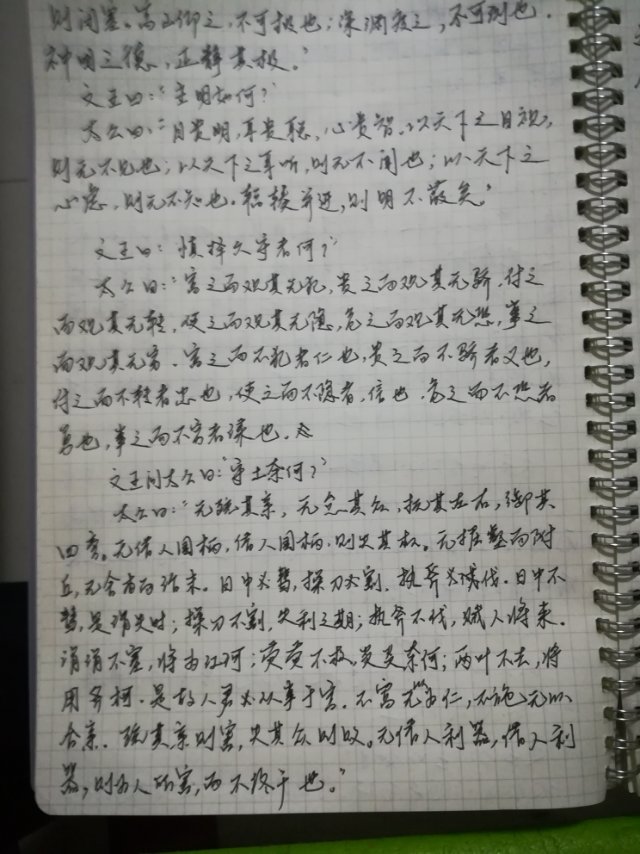 则闭塞。高山仰之，不可极也；深渊度之，不可测也。
神明之德，正静其极。”
文王曰：“主明如何？”
太公曰：“目贵明，耳贵聪，心贵智。以天下之目视，
则无不见也；以天下之耳听，则无不闻也；以天下之
心虑，则无不知也。辐辏并进，则明不蔽矣。”
文王曰：慎择六守者何？”
太公曰：“富之而观其无犯，贵之而观其无骄，付之
而观其无转，使之而观其无隐，危之而观其无恐，事之
而观其无穷。富之而不犯者仁也，贵之而不骄者义也，
付之而不转者忠也，使之而不隐者，信也，危之而不恐者
勇也，事之而不穷者谋也。
文王问太公曰：“守土奈何？”
太公曰：“无疏其亲，无怠其众，抚其左右，御其
四旁。无借人国柄，借人国柄，则失其权。无掘壑而附
丘，无舍本而治末。日中必彗，操刀必割，执斧必伐。日中不
彗，是谓失时；操刀不割，失利之期；执斧不伐，贼人将来。
涓涓不塞，将为江河；荧荧不救，炎炎奈何；两叶不去，将
用斧柯。是故人君必从事于富。不富无以为仁，不施无以
合亲。疏其亲则害，失其众则败。无借人利器，借人利
器，则为人所害，而不终于也。”